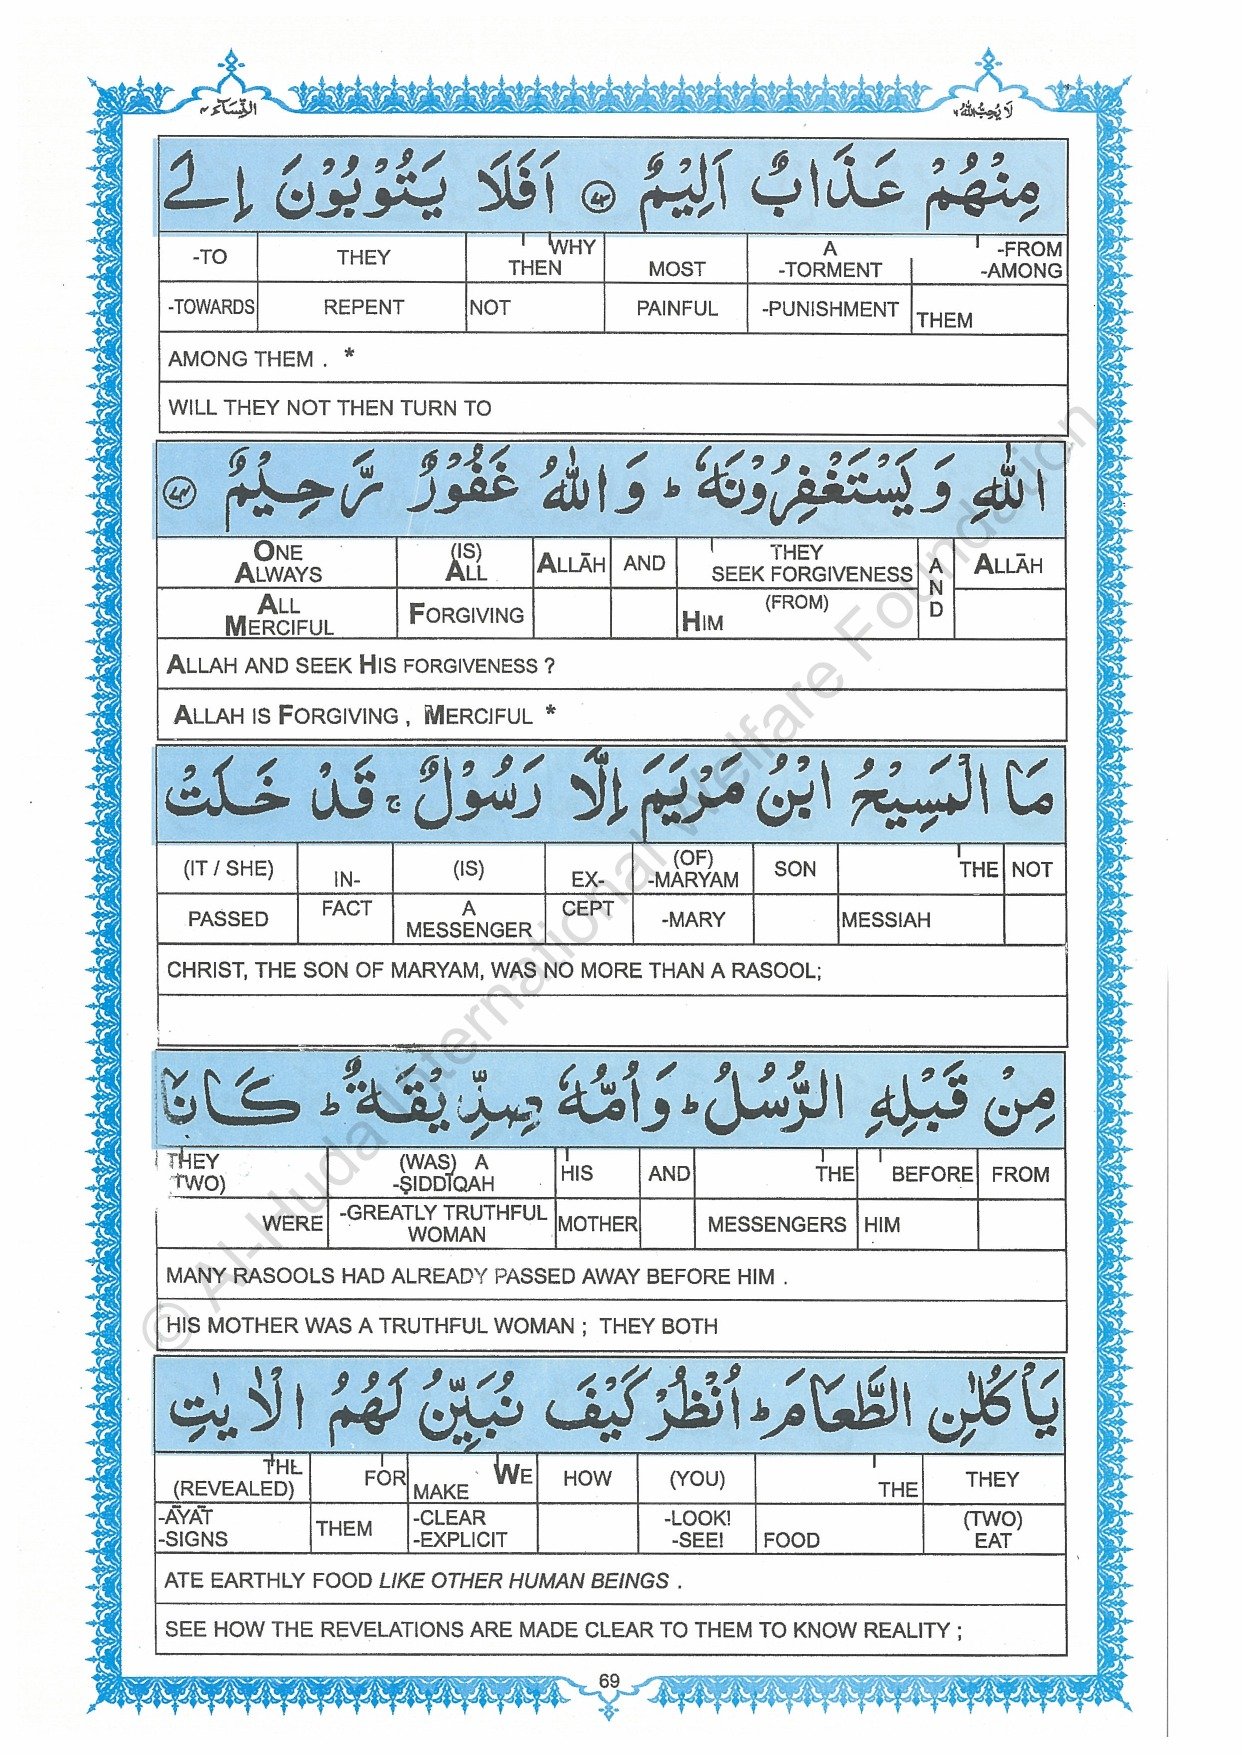 النساء ٤
لا يحب الله ٦
مِنْهُمْ عَذَابٌ اَلِيْمٌ ﴿۷۳﴾ اَفَلَا يَتُوْبُوْنَ اِلَى
-TO THEY WHY THEN MOST A -TORMENT -FROM -AMONG
-TOWARDS REPENT NOT PAINFUL -PUNISHMENT THEM
AMONG THEM . *
WILL THEY NOT THEN TURN TO
اللّٰهِ وَيَسْتَغْفِرُوْنَهٗ ؕ وَاللّٰهُ غَفُوْرٌ رَّحِيْمٌ ﴿۷۴﴾
ONE ALWAYS (IS) ALL ALLĀH AND THEY SEEK FORGIVENESS AND ALLĀH
ALL MERCIFUL FORGIVING (FROM) HIM
ALLAH AND SEEK HIS FORGIVENESS ?
ALLAH IS FORGIVING , MERCIFUL *
مَا الْمَسِيْحُ ابْنُ مَرْيَمَ اِلَّا رَسُوْلٌ ۚ قَدْ خَلَتْ
(IT / SHE) IN- (IS) EX- (OF) -MARYAM SON THE NOT
PASSED FACT A MESSENGER CEPT -MARY MESSIAH
CHRIST, THE SON OF MARYAM, WAS NO MORE THAN A RASOOL;
مِنْ قَبْلِهِ الرُّسُلُ ؕ وَاُمُّهٗ صِدِّيْقَةٌ ؕ كَانَا
THEY TWO) (WAS) A -ṢIDDĪQAH HIS AND THE BEFORE FROM
WERE -GREATLY TRUTHFUL WOMAN MOTHER MESSENGERS HIM
MANY RASOOLS HAD ALREADY PASSED AWAY BEFORE HIM .
HIS MOTHER WAS A TRUTHFUL WOMAN ; THEY BOTH
يَاْكُلٰنِ الطَّعَامَ ؕ اُنْظُرْ كَيْفَ نُبَيِّنُ لَهُمُ الْاٰيٰتِ
THE (REVEALED) FOR WE MAKE HOW (YOU) THE THEY
-ĀYĀT -SIGNS THEM -CLEAR -EXPLICIT -LOOK! -SEE! FOOD (TWO) EAT
ATE EARTHLY FOOD LIKE OTHER HUMAN BEINGS .
SEE HOW THE REVELATIONS ARE MADE CLEAR TO THEM TO KNOW REALITY ;
69
© Al-Huda International Welfare Foundation